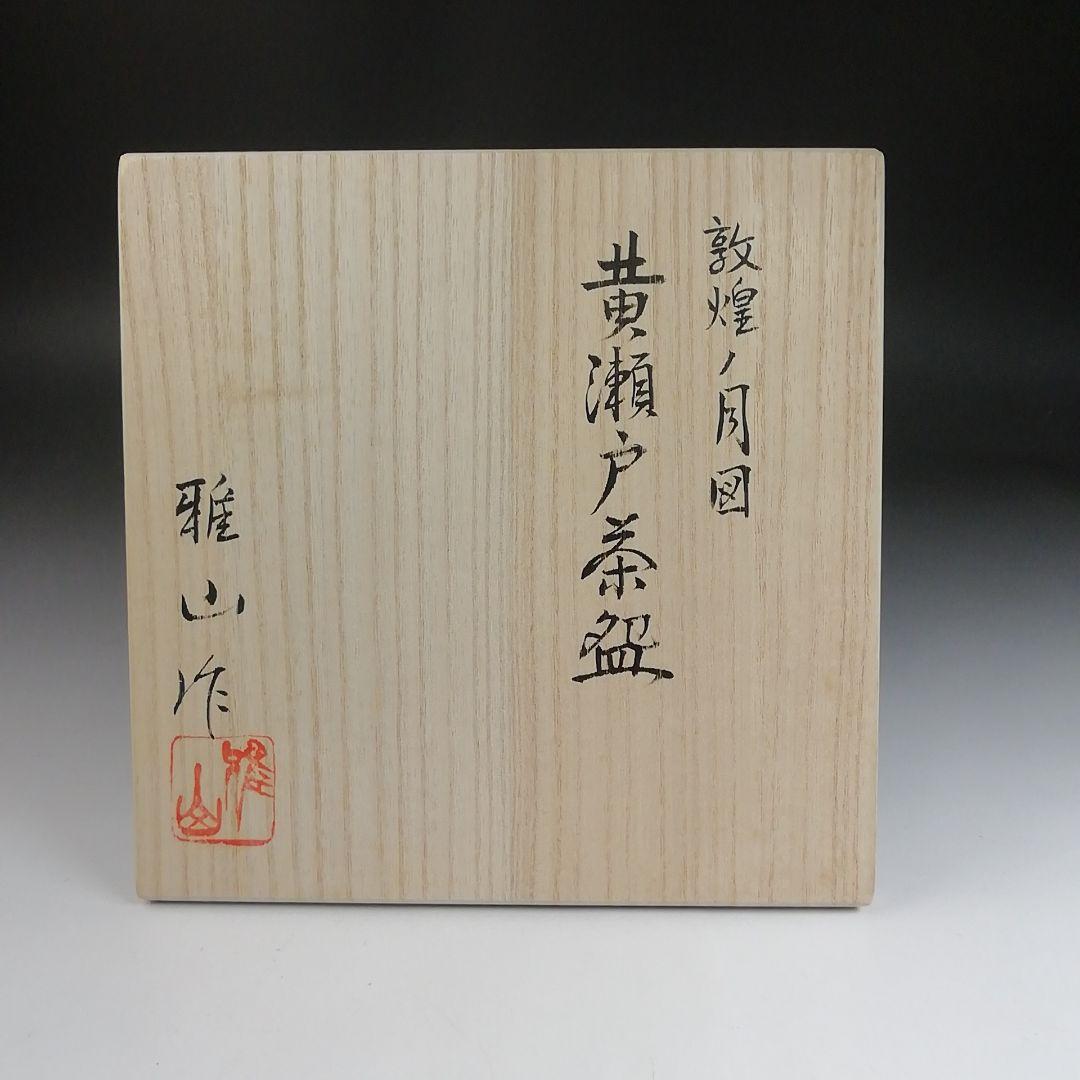 敦煌ノ月図
黄瀬戸茶盌
雅山作
雅山